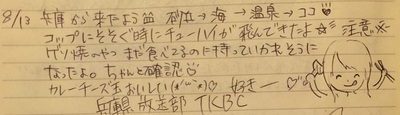 8/13 兵庫から来たよう 砂丘→海→温泉→ココ♡
コップにそそぐ時にチューハイが飛んできたよ☆ 注意※
ゲソ焼のやつ まだ食べてるのに持っていかれそうに
なったよ。ちゃんと確認♡
カレーチーズ玉おいしい(*'ω'*)♡ 好きー♡
兵庫県 放送部 TKBC